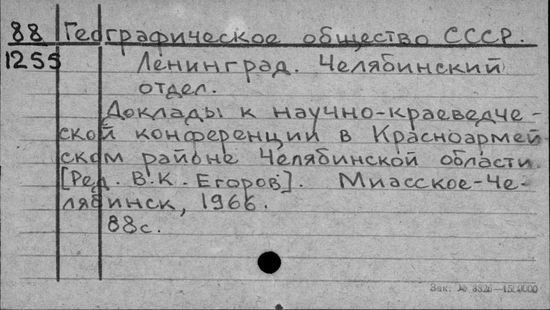 88 Географическое общество СССР.
1255 Ленинград. Челябинский
отдел.
Доклады к научно-краеведче-
ской конференции в Красноармей
ском районе Челябинской области.
[Ред. В.К. Егоров]. Миасское-Че-
лябинск, 1966.
88с.
Зак. № 3326—1500000